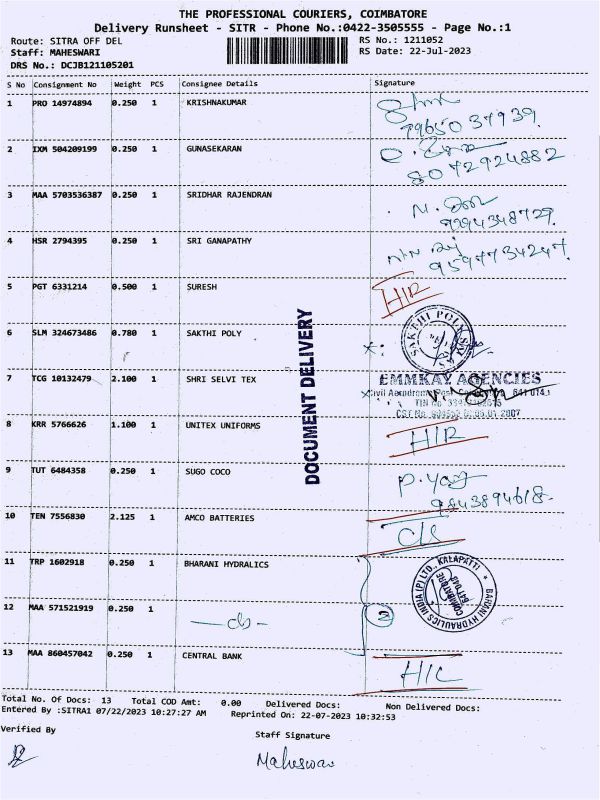 THE PROFESSIONAL COURIERS, COIMBATORE
Delivery Runsheet - SITR - Phone No.:0422-3505555 - Page No.:1
Route: SITRA OFF DEL RS No.: 1211052
Staff: MAHESWARI RS Date: 22-Jul-2023
DRS No.: DCJB121105201
S No Consignment No Weight PCS Consignee Details Signature
1 PRO 14974894 0.250 1 KRISHNAKUMAR
79650 37939
2 IXM 504209199 0.250 1 GUNASEKARAN
8072924882
3 MAA 5703536387 0.250 1 SRIDHAR RAJENDRAN
9294348729
4 HSR 2794395 0.250 1 SRI GANAPATHY
9597734247
5 PGT 6331214 0.500 1 SURESH H/R
6 SLM 324673486 0.780 1 SAKTHI POLY
SAKTHI POLY
DOCUMENT DELIVERY
7 TCG 10132479 2.100 1 SHRI SELVI TEX EMMKAY AGENCIES
Civil Aerodrome Post, 641 014
TIN No
CST No 2007
8 KRR 5766626 1.100 1 UNITEX UNIFORMS H/R
9 TUT 6484358 0.250 1 SUGO COCO
9843894618
10 TEN 7556830 2.125 1 AMCO BATTERIES
11 TRP 1602918 0.250 1 BHARANI HYDRALICS
BARANI HYDRAULICS INDIA (P) LTD., KALAPATTI
COIMBATORE
12 MAA 571521919 0.250 1 2
13 MAA 860457042 0.250 1 CENTRAL BANK
Total No. Of Docs: 13 Total COD Amt: 0.00 Delivered Docs: Non Delivered Docs:
Entered By :SITRA1 07/22/2023 10:27:27 AM Reprinted On: 22-07-2023 10:32:53
Verified By Staff Signature
Maheswari